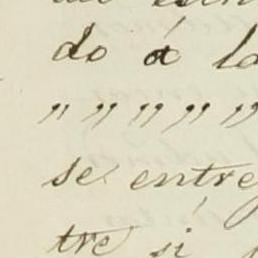 do á la
" " " " "
se entre
tre si